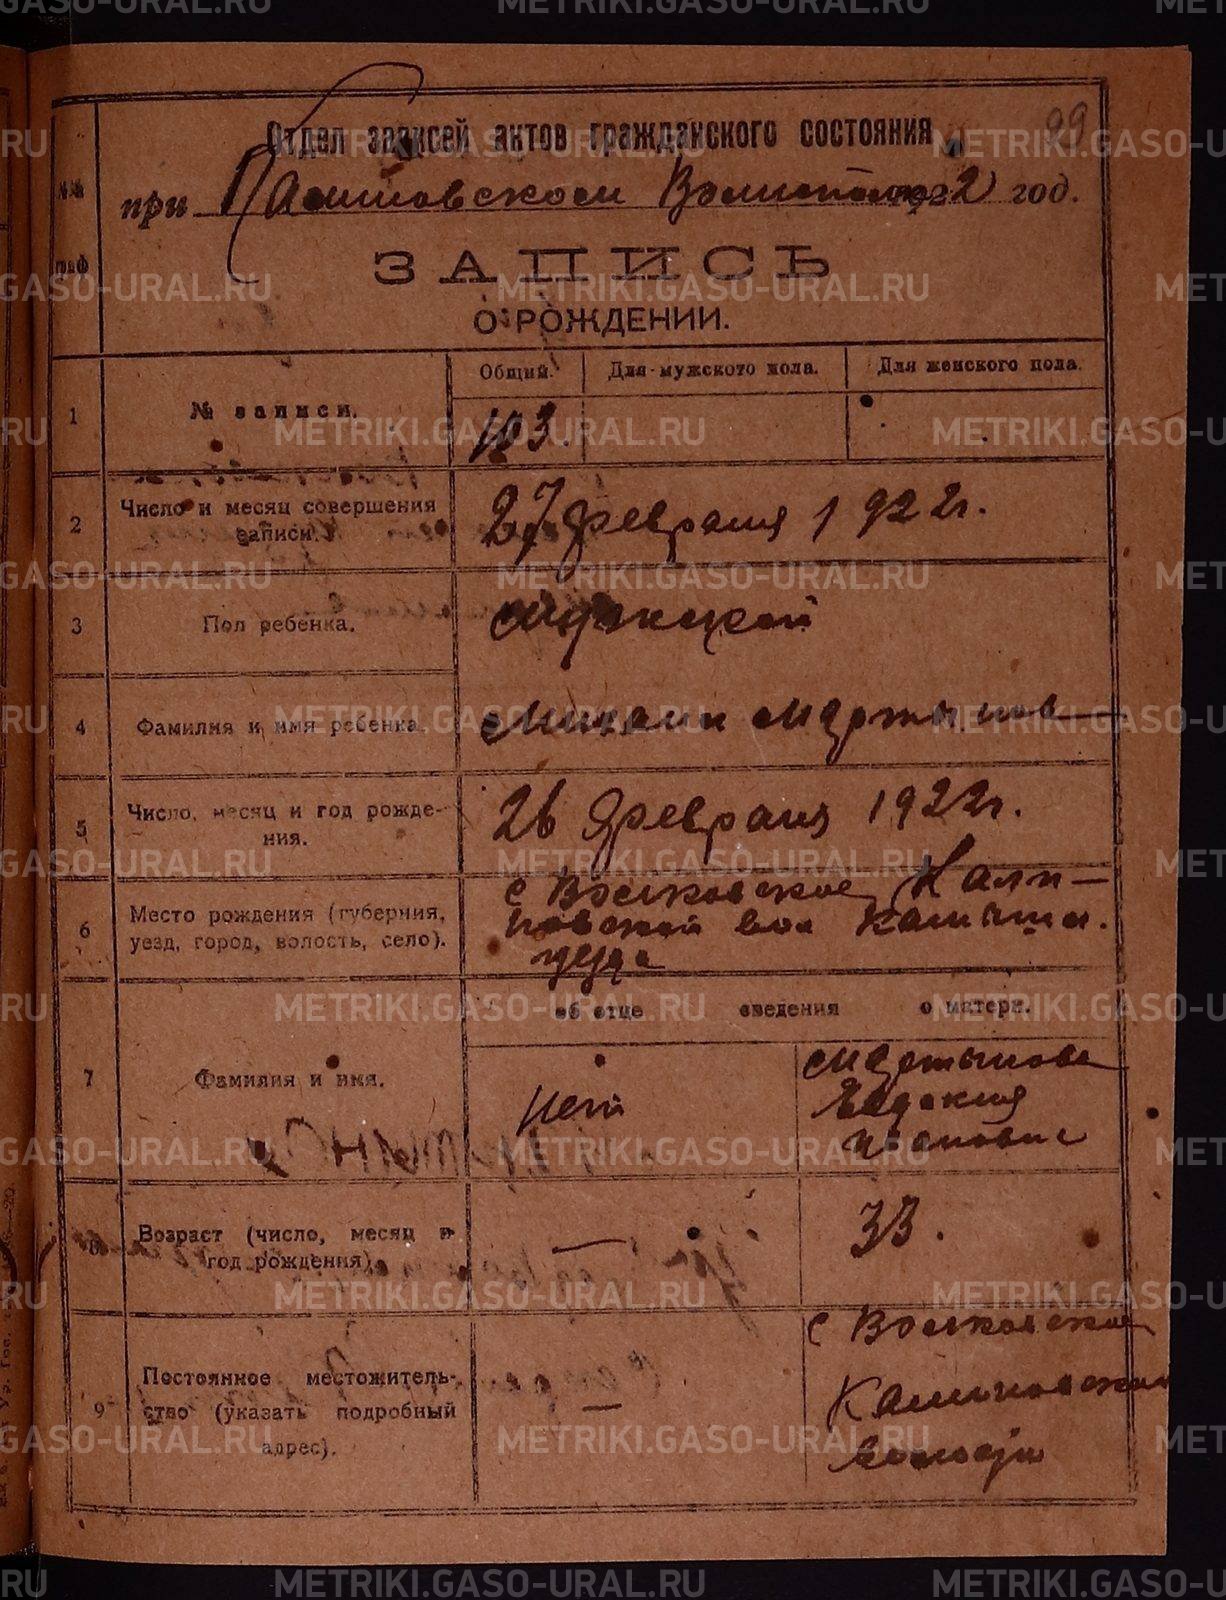 99
Отдел записей актов гражданского состояния
№№ граф
при Калиновском Волисполк 1922 год.
ЗАПИСЬ
О РОЖДЕНИИ.
Общий. Для мужского пола. Для женского пола.
1 № записи. 103.
2 Число и месяц совершения записи. 27 февраля 1922 г.
3 Пол ребенка. мужской
4 Фамилия и имя ребенка. Михаил Мартынов
5 Число, месяц и год рождения. 26 февраля 1922 г.
6 Место рождения (губерния, уезд, город, волость, село).
с Волковское Кали-
новской вол Камышл.
уезда
об отце сведения о матери.
7 Фамилия и имя. нет
Мартынова
Евдокия
8 Возраст (число, месяц и год рождения). — 33.
9 Постоянное местожитель-
ство (указать подробный
адрес). —
с Волковское
Калиновской
волости
METRIKI.GASO-URAL.RU